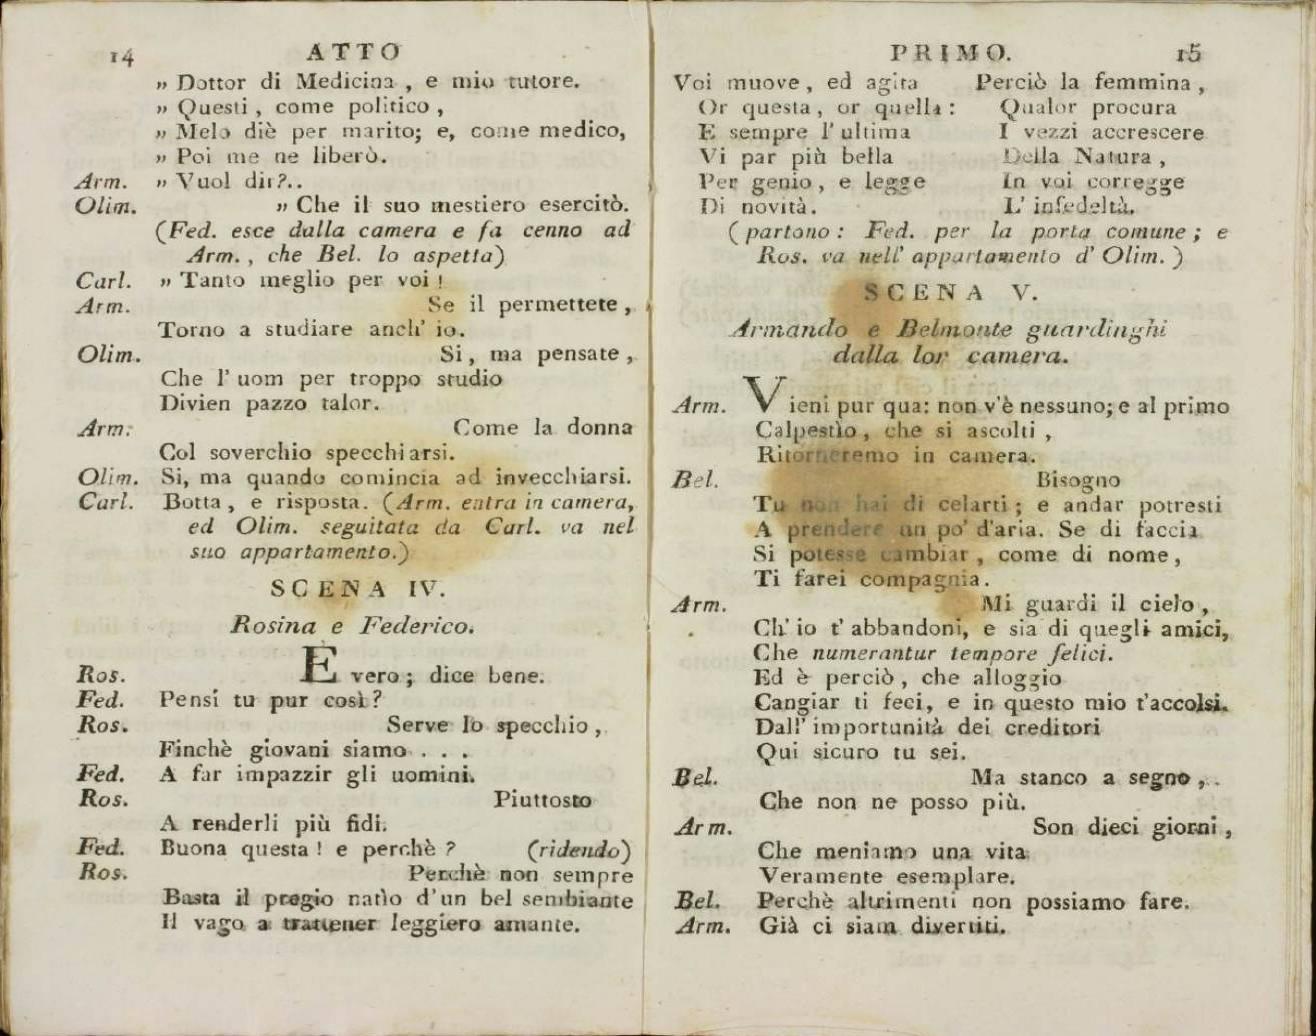 14 ATTO
„ Dottor di Medicina , e mio tutore.
„ Questi , come politico ,
„ Melo diè per marito; e, come medico,
„ Poi me ne liberò.
Arm. „ Vuol dir?..
Olim. „ Che il suo mestiero esercitò.
(Fed. esce dalla camera e fa cenno ad
Arm. , che Bel. lo aspetta)
Carl. „ Tanto meglio per voi !
Arm. Se il permettete ,
Torno a studiare anch' io.
Olim. Si , ma pensate ,
Che l' uom per troppo studio
Divien pazzo talor.
Arm. Come la donna
Col soverchio specchiarsi.
Olim. Si, ma quando comincia ad invecchiarsi.
Carl. Botta , e risposta. (Arm. entra in camera,
ed Olim. seguitata da Carl. va nel
suo appartamento.)
SCENA IV.
Rosina e Federico.
Ros. È vero ; dice bene.
Fed. Pensi tu pur così ?
Ros. Serve lo specchio ,
Finchè giovani siamo . . .
Fed. A far impazzir gli uomini.
Ros. Piuttosto
A renderli più fidi.
Fed. Buona questa ! e perchè ? (ridendo)
Ros. Perchè non sempre
Basta il pregio natìo d'un bel sembiante
Il vago a trattener leggiero amante.
PRIMO. 15
Voi muove , ed agita
Or questa , or quella :
E sempre l' ultima
Vi par più bella
Per genio , e legge
Di novità.
Perciò la femmina ,
Qualor procura
I vezzi accrescere
Della Natura ,
In voi corregge
L' infedeltà.
( partono : Fed. per la porta comune ; e
Ros. va nell' appartamento d' Olim. )
SCENA V.
Armando e Belmonte guardinghi
dalla lor camera.
Arm. Vieni pur qua: non v'è nessuno; e al primo
Calpestìo , che si ascolti ,
Ritorneremo in camera.
Bel. Bisogno
Tu non hai di celarti ; e andar potresti
A prendere un po' d'aria. Se di faccia
Si potesse cambiar , come di nome ,
Ti farei compagnia.
Arm. Mi guardi il cielo ,
Ch' io t' abbandoni, e sia di quegli amici,
Che numerantur tempore felici.
Ed è perciò , che alloggio
Cangiar ti feci, e in questo mio t'accolsi.
Dall' importunità dei creditori
Qui sicuro tu sei.
Bel. Ma stanco a segno ,
Che non ne posso più.
Arm. Son dieci giorni ,
Che meniamo una vita
Veramente esemplare.
Bel. Perchè altrimenti non possiamo fare.
Arm. Già ci siam divertiti.